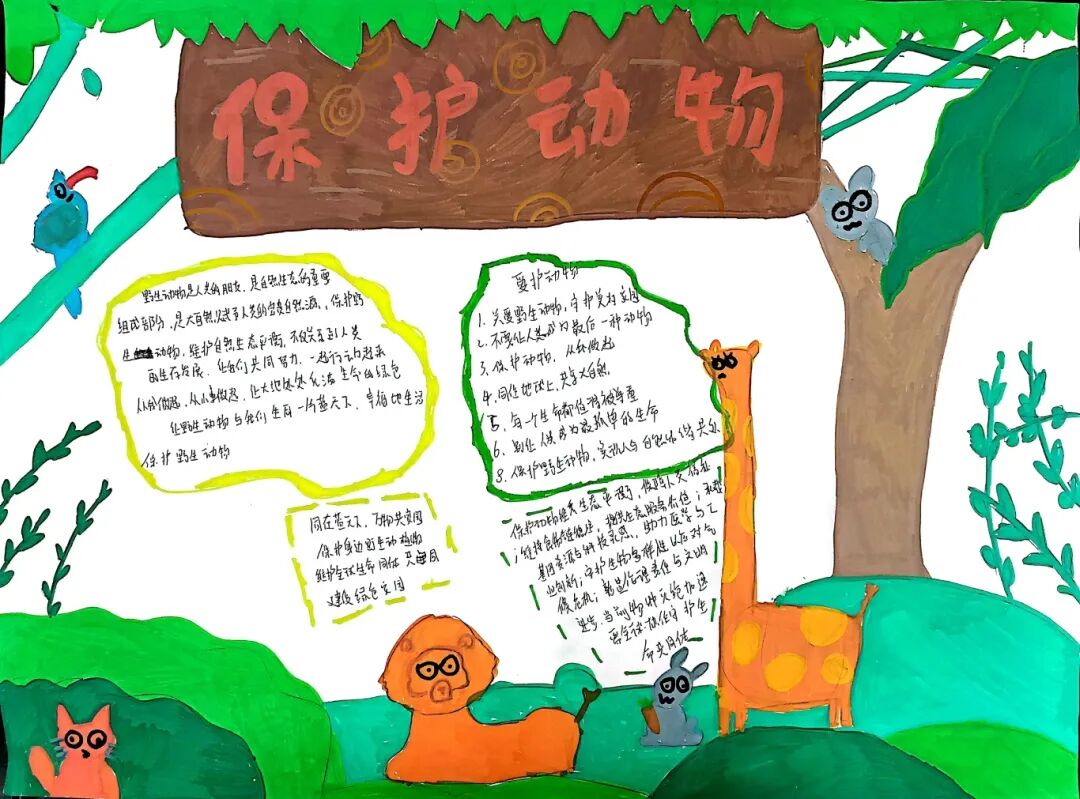 保护动物
野生动物是人类的朋友，是自然生态的重要
组成部分，是大自然赋予人类的宝贵自然资源，保护野
生动物，维护自然生态平衡，不仅关系到人类
的生存发展，让我们共同努力，一起行动起来
从我做起，从小事做起，让大地处处充满生命的绿色
让野生动物与我们生活一片蓝天下，幸福地生活
保护野生动物
爱护动物
1. 关爱野生动物，守护美好家园
2. 不要让人类成为最后一种动物
3. 保护动物，从我做起
4. 同住地球上，共享大自然
5. 每一个生命都值得被尊重
6. 别让人类成为最孤单的生命
8. 保护野生动物，实现人与自然和谐共处
同在蓝天下，万物共家园
保护身边的生动植物
维护全球生命同体共
建设绿色家园
保护动物维系生态平衡，保障人类福祉
；维持食物链稳定，提供生态服务价值；
基因资源与科技灵感，助力医学与工
业创新；守护生物多样性以应对气
候危机；彰显伦理责任与文明
进步。当前物种灭绝加速
需全球携手守护生
命共同体